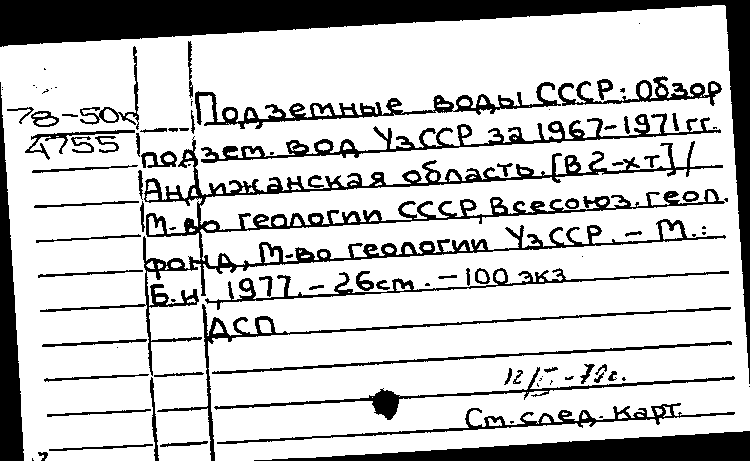 78-50к
4755
Подземные воды СССР: Обзор
подзем. вод УзССР за 1967-1971 гг.
Андижанская область. [В 2-х т.] /
М-во геологии СССР, Всесоюз. геол.
фонд, М-во геологии УзССР. - М.:
Б.и., 1977. - 26 ст. - 100 экз
ДСП.
См. след. карт.